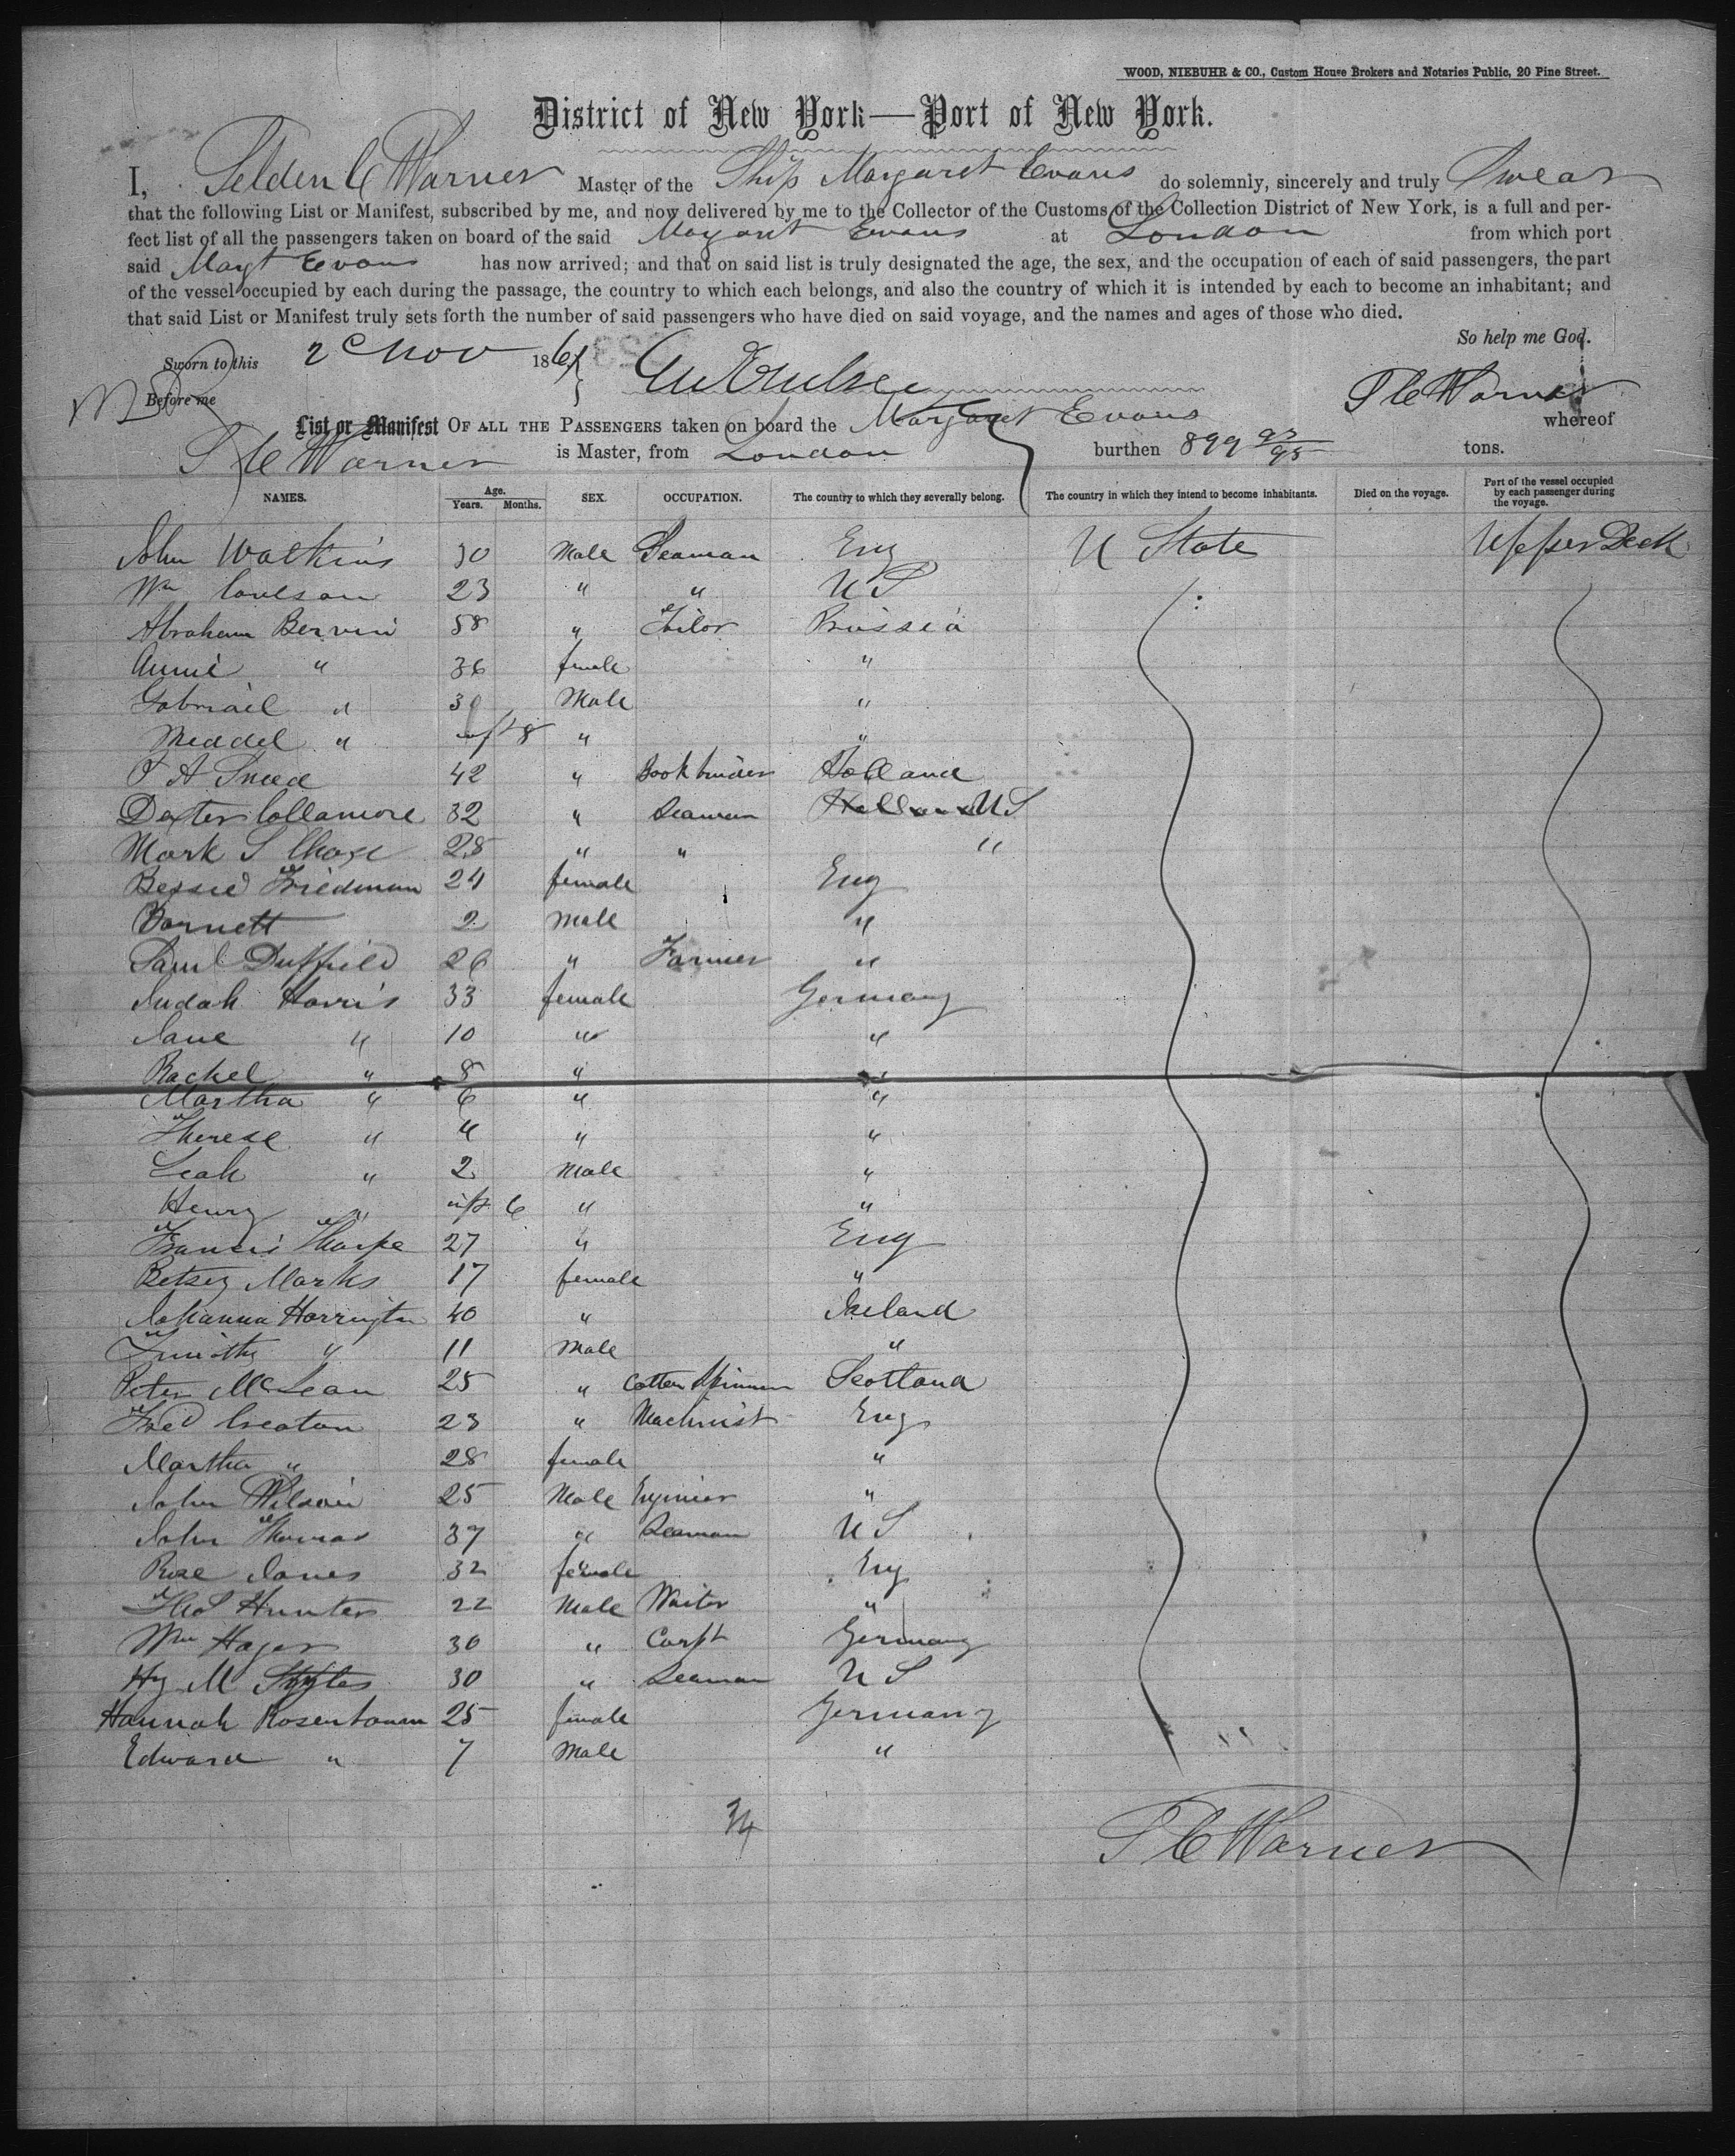 WOOD, NIEBUHR & CO., Custom House Brokers and Notaries Public, 20 Pine Street.
District of New York—Port of New York.
I, Selden C Warner Master of the Ship Margaret Evans do solemnly, sincerely and truly Swear
that the following List or Manifest, subscribed by me, and now delivered by me to the Collector of the Customs of the Collection District of New York, is a full and per-
fect list of all the passengers taken on board of the said Margaret Evans at London from which port
said Margt Evans has now arrived; and that on said list is truly designated the age, the sex, and the occupation of each of said passengers, the part
of the vessel occupied by each during the passage, the country to which each belongs, and also the country of which it is intended by each to become an inhabitant; and
that said List or Manifest truly sets forth the number of said passengers who have died on said voyage, and the names and ages of those who died.
So help me God.
Sworn to this 2d Nov 186
Before me
S C Warner
List or Manifest OF ALL THE PASSENGERS taken on board the Margaret Evans whereof
S C Warner is Master, from London burthen 899 93/95 tons.
NAMES. Age. Years. Months. SEX. OCCUPATION. The country to which they severally belong. The country in which they intend to become inhabitants. Died on the voyage. Part of the vessel occupied by each passenger during the voyage.
John Watkins 30 Male Seaman Eng U State Upper Deck
Wm Coulson 23 " " U S
Abraham Bervin 58 " Tailor Prussia
Annie " 36 female "
Gabriail " 30 Male "
Meddel " inft 8 " "
P A Sneed 42 " Bookbinder Holland
Dexter Collamore 32 " Seaman Holland U S
Mark S Chase 28 " " "
Bessie Friedman 24 female Eng
Barnett 2 Male "
Saml Duffield 26 " Farmer "
Judah Harris 33 female Germany
Jane " 10 " "
Rachel " 8 " "
Martha " 6 " "
Therese " 4 " "
Leah " 2 Male "
Henry " inft 6 " "
Francis Tharpe 27 " Eng
Betsey Marks 17 female "
Johanna Harrington 40 " Ireland
Timothy " 11 Male "
Peter McLean 25 " Cotton Spinner Scotland
Fred Creaton 23 " Machinist Eng
Martha " 28 female "
John Wilson 25 Male Engineer "
John Thomas 37 " Seaman U S
Rose Jones 32 female Eng
Thos Hunter 22 Male Waiter "
Wm Hager 30 " Carpt Germany
Hy M Styles 30 " Seaman U S
Hannah Rosenbaum 25 female Germany
Edward " 7 Male "
34
S C Warner